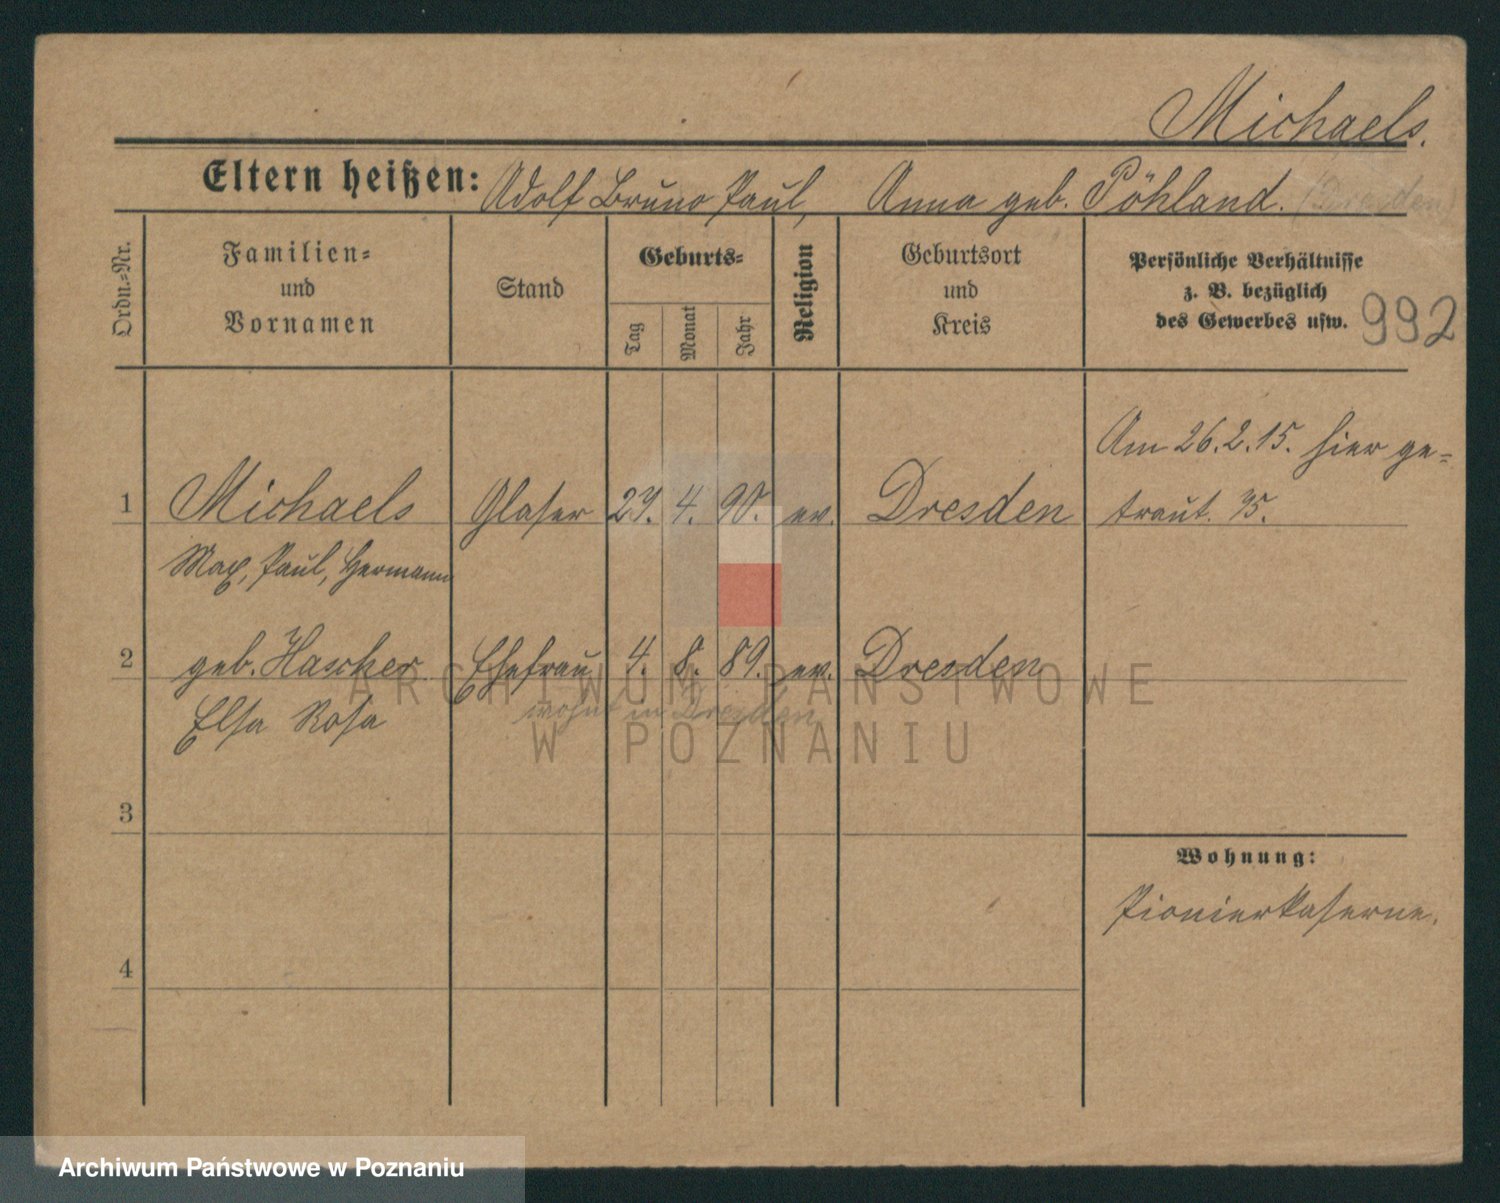 Michaels.
Eltern heißen: Adolf Bruno Paul, Anna geb. Pöhland. (Dresden)
Ordn.-Nr.
Familien-
und
Vornamen
Stand
Geburts-
Tag
Monat
Jahr
Religion
Geburtsort
und
Kreis
Persönliche Verhältnisse
z. B. bezüglich
des Gewerbes usw.
992
Am 26.2.15. hier ge-
1 Michaels Glaser 27. 4. 90. ev. Dresden traut.
Max, Paul, Hermann
2 geb. Hascher Ehefrau 4. 8. 89. ev. Dresden
Elsa Rosa
wohnt in Dresden
ARCHIWUM PAŃSTWOWE
W POZNANIU
3
Wohnung:
Pionierkaserne.
4
Archiwum Państwowe w Poznaniu